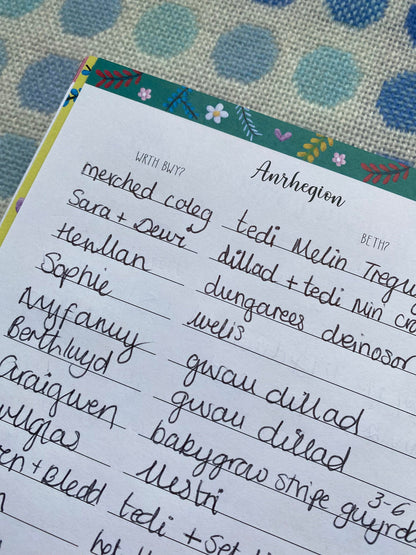 Anrhegion
WRTH BWY? BETH?
merched coleg tedi Melin Tregwy
Sara + Dewi dillad + tedi Nin
Henllan dungarees deinosor
Sophie welis
Nyfanwy gwau dillad
Berthlwyd gwau dillad
Graigwen babygrow stripe gwyrdd 3-6
llestri
+ Bledd tedi + set